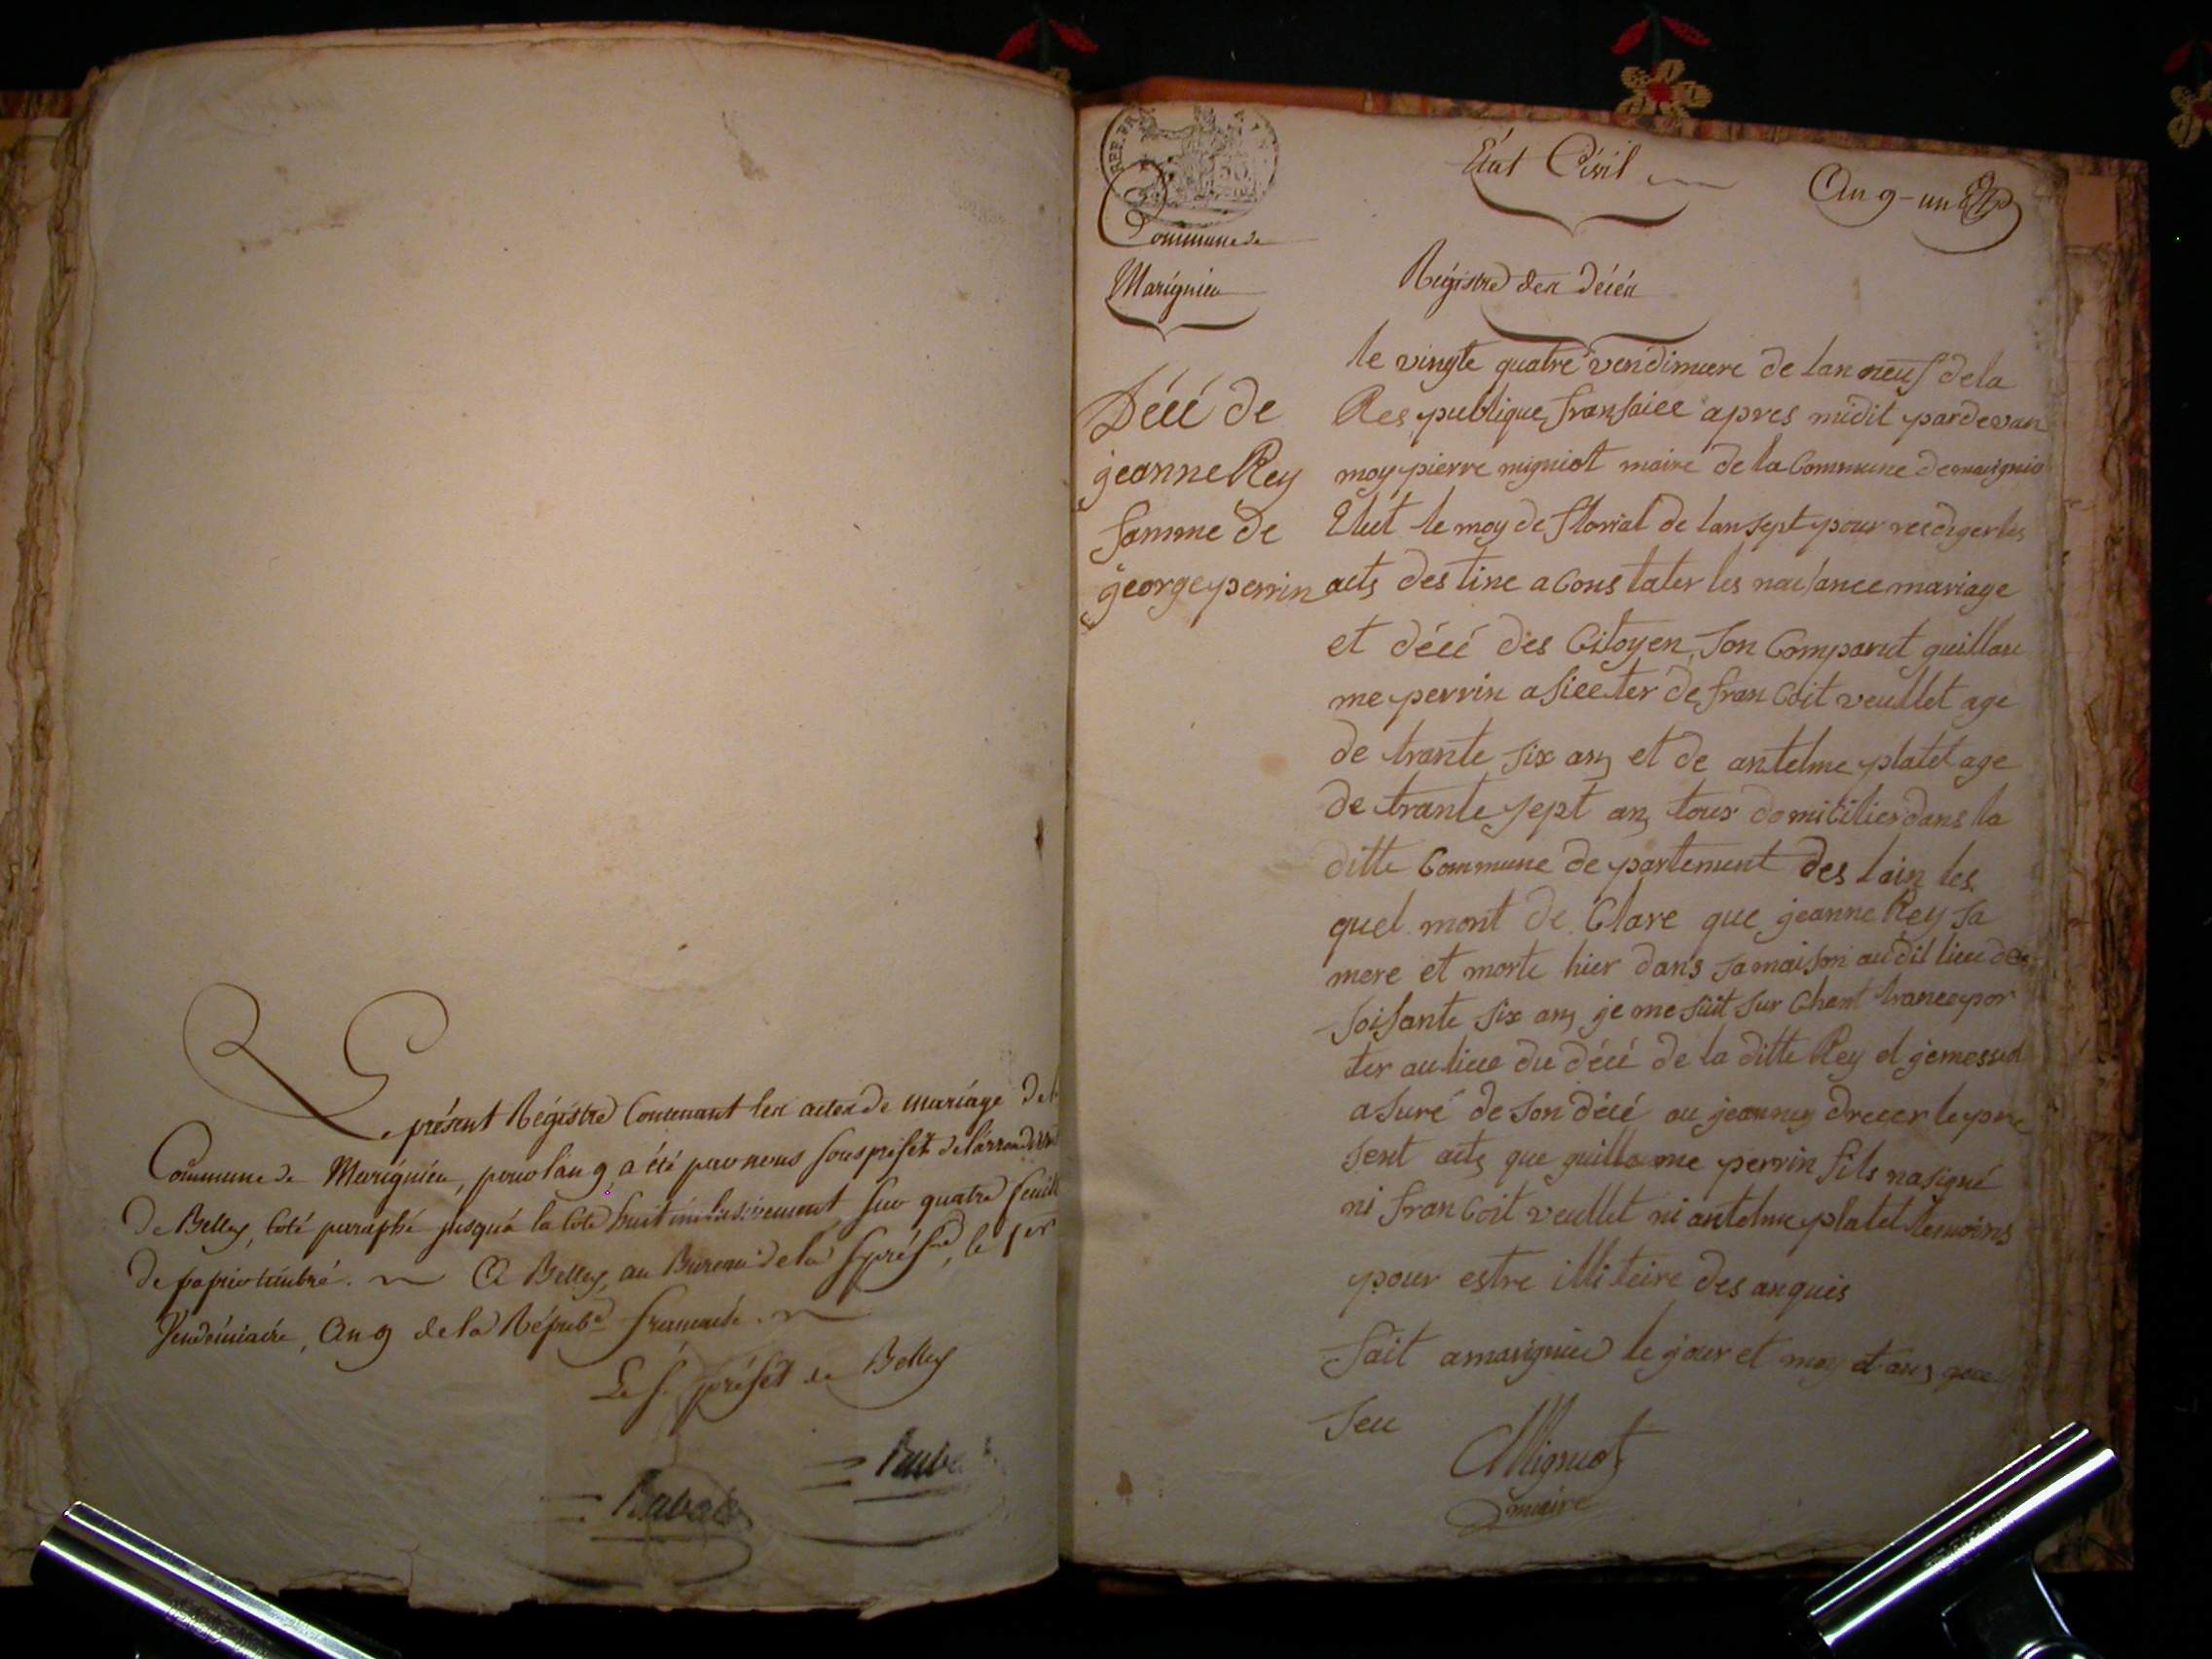 Le présent Régistre Contenant les actes de mariage de la
Commune de Marignieu, pour l'an 9, a été par nous sous préfet de l'arrondissmt
De Belley, Coté paraphé jusqu'à la Cote huit inclusivement sur quatre feuill
de papier timbré. A Belley, au Bureau de la S/préfre, le 1er
Vendémiaire, An 9 de la Répubq française.
Le S. préfet de Belley
REP. FRA
Commune de
Marignieu
État Civil
An 9 - un
Régistre des décès
Décé de
jeanne Rey
famme de
george perrin
le vingte quatre vendimiere de lan neuf de la
Res publique fransaice apres midit par devan
moy pierre migniot maire de la Commune de marignio
Elut le moy de florial de lan sept pour resdiger les
acts des tine a Cons tater les naisance mariage
et décé des Citoyen Son Comparut guillau
me perrin asiceter de fran Coit veullet age
de trante six ans et de antelme platet age
de trante sept ans tous domicilier dans la
ditte Commune de partement des lain les
quel mont de Clare que jeanne Rey sa
mere et morte hier dans sa maison audit lieu de
soisante six ans je me suit sur Chant trancepor
ter au lieu du décé de la ditte Rey et je
asuré de son décé drecer le pre
sent acts que guillaume perrin fils na signé
ni fran Coit veullet ni antelme platet temoins
pour estre illi teire des anquis
fait a marignieu le jour et moy et ans que
seu
Migniot
maire